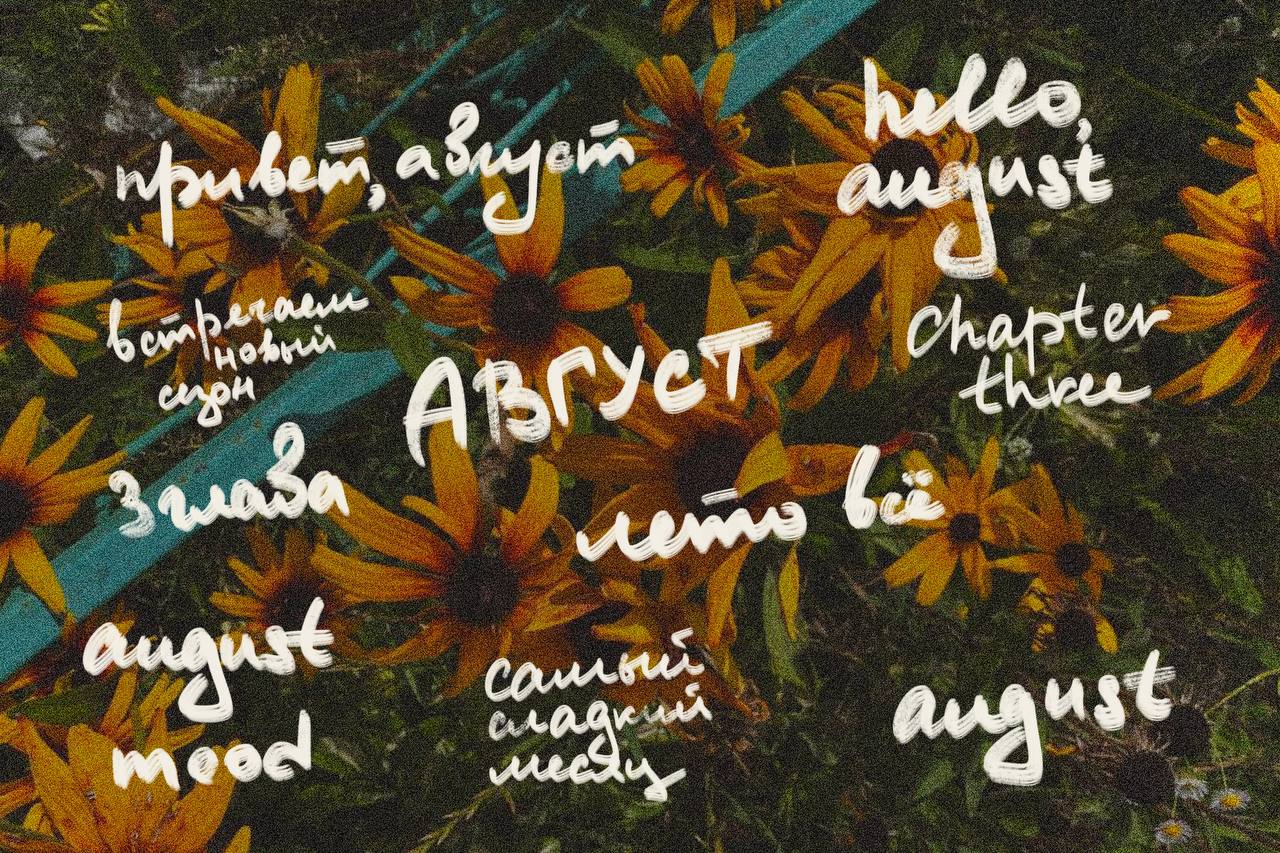 привет, август
hello,
august
встречаем
новый
сезон
АВГУСТ
chapter
three
3 глава
лето всё
august
mood
самый
сладкий
месяц
august